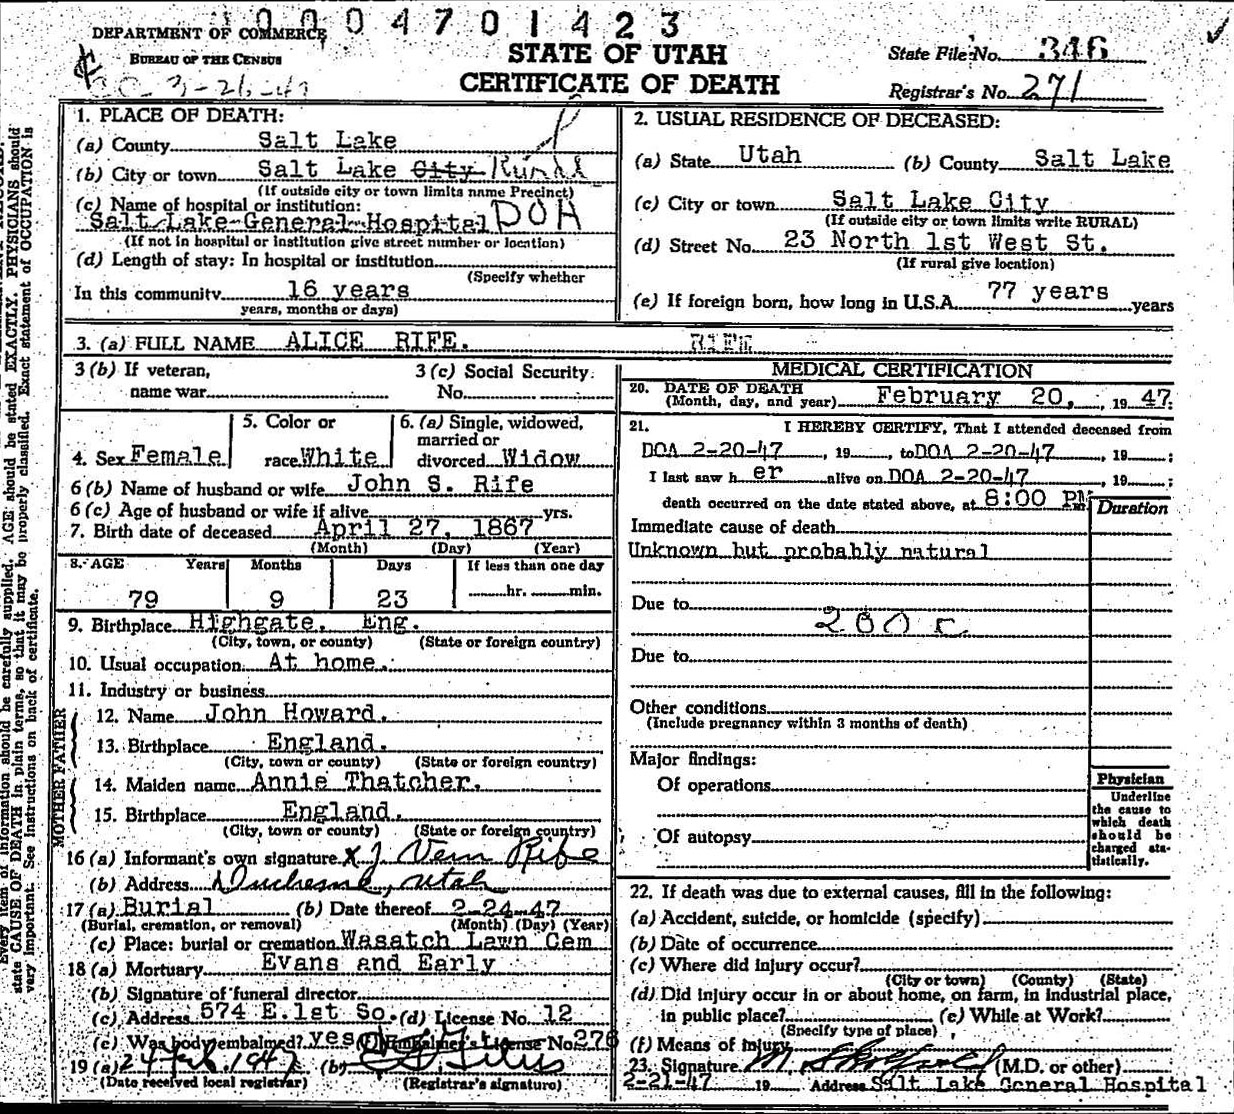 00004701423
DEPARTMENT OF COMMERCE
BUREAU OF THE CENSUS
3-26-47
STATE OF UTAH
CERTIFICATE OF DEATH
State File No. 346
Registrar's No. 271
Every item of information should be carefully supplied. AGE should be stated EXACTLY. PHYSICIANS should
state CAUSE OF DEATH in plain terms, so that it may be properly classified. Exact statement of OCCUPATION is
very important. See instructions on back of certificate.
1. PLACE OF DEATH:
(a) County Salt Lake
(b) City or town Salt Lake City Rural
(If outside city or town limits name Precinct)
(c) Name of hospital or institution:
Salt Lake General Hospital DOA
(If not in hospital or institution give street number or location)
(d) Length of stay: In hospital or institution
(Specify whether
In this community 16 years
years, months or days)
2. USUAL RESIDENCE OF DECEASED:
(a) State Utah (b) County Salt Lake
(c) City or town Salt Lake City
(If outside city or town limits write RURAL)
(d) Street No. 23 North 1st West St.
(If rural give location)
(e) If foreign born, how long in U.S.A. 77 years years
3. (a) FULL NAME ALICE RIFE. RIFE
3 (b) If veteran,
name war
3 (c) Social Security
No.
4. Sex Female
5. Color or
race White
6. (a) Single, widowed,
married or
divorced Widow
6 (b) Name of husband or wife John S. Rife
6 (c) Age of husband or wife if alive yrs.
7. Birth date of deceased April 27, 1867
(Month) (Day) (Year)
8. AGE Years Months Days If less than one day
79 9 23 hr. min.
9. Birthplace Highgate, Eng.
(City, town, or county) (State or foreign country)
10. Usual occupation At home.
11. Industry or business
FATHER
12. Name John Howard.
13. Birthplace England.
(City, town or county) (State or foreign country)
MOTHER
14. Maiden name Annie Thatcher.
15. Birthplace England.
(City, town or county) (State or foreign country)
16 (a) Informant's own signature X J. Vern Rife
(b) Address Duchesne, Utah
17 (a) Burial (b) Date thereof 2-24-47
(Burial, cremation, or removal) (Month) (Day) (Year)
(c) Place: burial or cremation Wasatch Lawn Cem
18 (a) Mortuary Evans and Early
(b) Signature of funeral director
(c) Address 574 E.1st So. (d) License No. 12
(e) Was body embalmed? yes (f) Embalmer's License No. 276
19 (a) 24 Feb. 1947 (b)
(Date received local registrar) (Registrar's signature)
MEDICAL CERTIFICATION
20. DATE OF DEATH
(Month, day, and year) February 20, , 19 47.
21. I HEREBY CERTIFY, That I attended deceased from
DOA 2-20-47 , 19 , to DOA 2-20-47 , 19 ;
I last saw h er alive on DOA 2-20-47 , 19 ;
death occurred on the date stated above, at 8:00 PM
Duration
Immediate cause of death
Unknown but probably natural
Due to
200 c
Due to
Other conditions
(Include pregnancy within 3 months of death)
Major findings:
Of operations
Of autopsy
Physician
Underline
the cause to
which death
should be
charged sta-
tistically.
22. If death was due to external causes, fill in the following:
(a) Accident, suicide, or homicide (specify)
(b) Date of occurrence
(c) Where did injury occur?
(City or town) (County) (State)
(d) Did injury occur in or about home, on farm, in industrial place,
in public place? (e) While at Work?
(Specify type of place)
(f) Means of injury
23. Signature (M.D. or other)
2-21-47 19 Address Salt Lake General Hospital